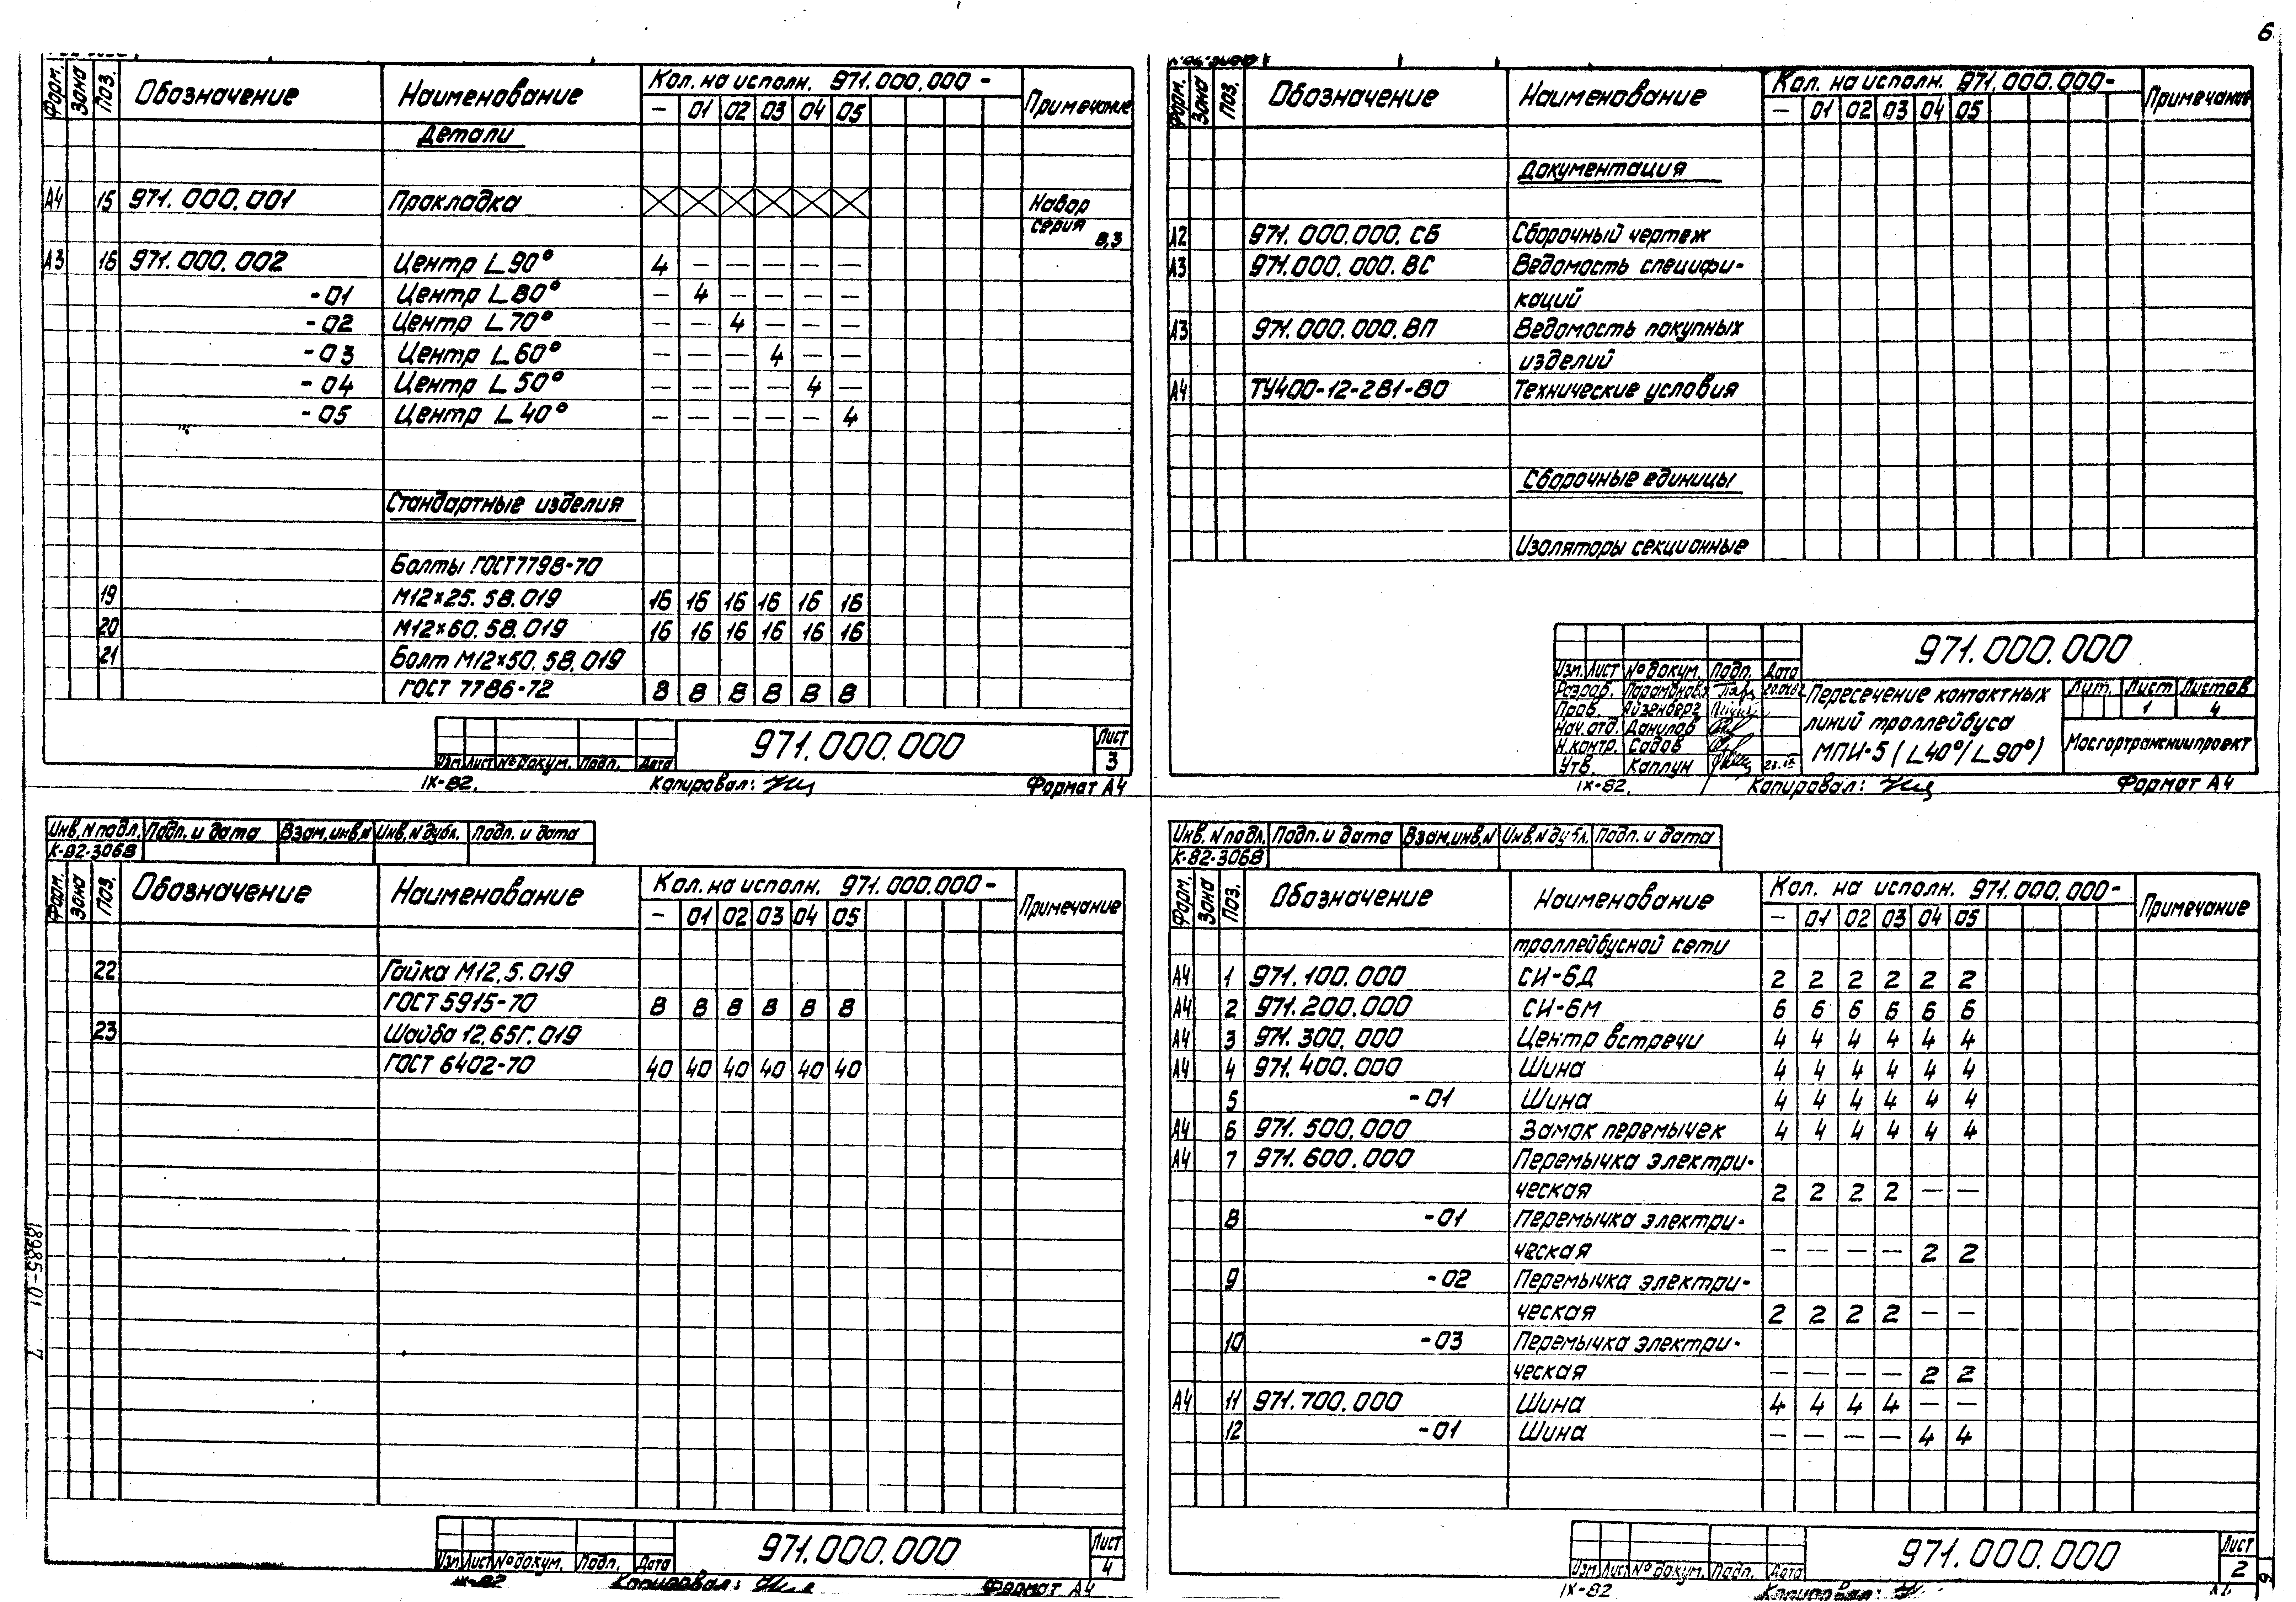 6
Форм. Зона Поз. Обозначение Наименование Кол. на исполн. 971.000.000 - Примечание
— 01 02 03 04 05
Детали
А4 15 971.000.001 Прокладка Набор
серия
8,3
А3 16 971.000.002 Центр ∟90° 4 — — — — —
-01 Центр ∟80° — 4 — — — —
-02 Центр ∟70° — — 4 — — —
-03 Центр ∟60° — — — 4 — —
-04 Центр ∟50° — — — — 4 —
-05 Центр ∟40° — — — — — 4
Стандартные изделия
Болты ГОСТ7798-70
19 М12×25.58.019 16 16 16 16 16 16
20 М12×60.58.019 16 16 16 16 16 16
21 Болт М12×50.58.019
ГОСТ 7786-72 8 8 8 8 8 8
971.000.000 Лист 3
Изм Лист № докум. Подп. Дата
IX-82. Копировал: Формат А4
Форм. Зона Поз. Обозначение Наименование Кол. на исполн. 971.000.000- Примечание
— 01 02 03 04 05
Документация
А2 971.000.000.СБ Сборочный чертеж
А3 971.000.000.ВС Ведомость специфи-
каций
А3 971.000.000.ВП Ведомость покупных
изделий
А4 ТУ400-12-281-80 Технические условия
Сборочные единицы
Изоляторы секционные
971.000.000
Изм. Лист № докум. Подп. Дата
Разраб. Парамонова
Пров. Айзенберг
Нач. отд. Данилов
Н.контр. Садов
Утв. Каплун
Пересечение контактных
линий троллейбуса
МПИ-5 (∟40°/∟90°)
Лит. Лист Листов
1 4
Мосгортрансниипроект
IX-82. Копировал: Формат А4
Инв. N подл. Подп. и дата Взам. инв. N Инв. N дубл. Подп. и дата
К-82-3068
Форм. Зона Поз. Обозначение Наименование Кол. на исполн. 971.000.000- Примечание
— 01 02 03 04 05
22 Гайка М12.5.019
ГОСТ 5915-70 8 8 8 8 8 8
23 Шайба 12.65Г.019
ГОСТ 6402-70 40 40 40 40 40 40
971.000.000 Лист 4
Изм Лист № докум. Подп. Дата
IX-82 Копировал: Формат А4
18985-01 7
Инв. N подл. Подп. и дата Взам. инв. N Инв. N дубл. Подп. и дата
К-82-3068
Форм. Зона Поз. Обозначение Наименование Кол. на исполн. 971.000.000- Примечание
— 01 02 03 04 05
троллейбусной сети
А4 1 971.100.000 СИ-6Д 2 2 2 2 2 2
А4 2 971.200.000 СИ-6М 6 6 6 6 6 6
А4 3 971.300.000 Центр встречи 4 4 4 4 4 4
А4 4 971.400.000 Шина 4 4 4 4 4 4
5 -01 Шина 4 4 4 4 4 4
А4 6 971.500.000 Замок перемычек 4 4 4 4 4 4
А4 7 971.600.000 Перемычка электри-
ческая 2 2 2 2 — —
8 -01 Перемычка электри-
ческая — — — — 2 2
9 -02 Перемычка электри-
ческая 2 2 2 2 — —
10 -03 Перемычка электри-
ческая — — — — 2 2
А4 11 971.700.000 Шина 4 4 4 4 — —
12 -01 Шина — — — — 4 4
971.000.000 Лист 2
Изм. Лист № докум. Подп. Дата
IX-82 Копировал: